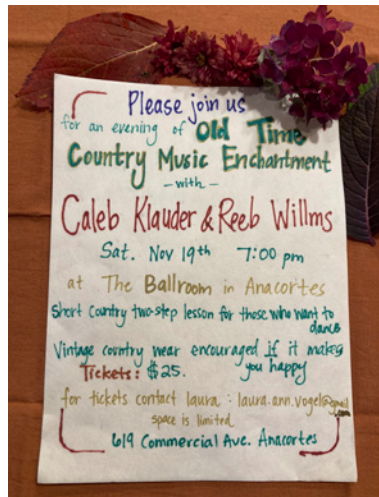 Please join us
for an evening of Old Time
Country Music Enchantment
- with -
Caleb Klauder & Reeb Willms
Sat. Nov 19th 7:00 pm
at The Ballroom in Anacortes
Short Country two-step lesson for those who want to
dance
Vintage country wear encouraged if it makes
you happy
Tickets: $25.
for tickets contact laura : laura.ann.vogel@gmail
.com
space is limited
619 Commercial Ave. Anacortes